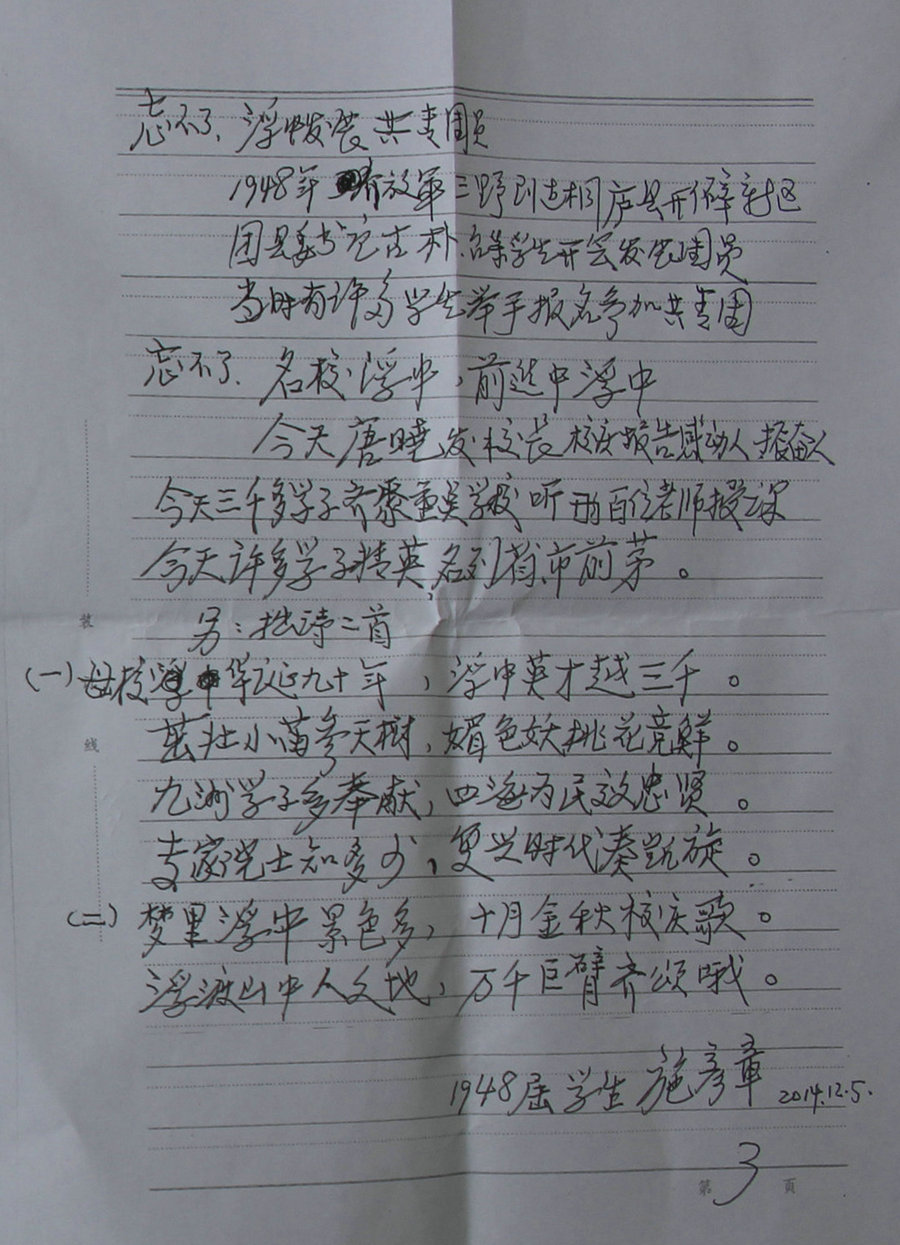 忘不了、浮中发展共青团员
1948年 解放军三野到达桐庐县开僻新区
团县委书记古朴、召集学生开会发展团员
当时有许多学生举手报名参加共青团
忘不了、名校浮中，前进中浮中
今天唐晓发校长校庆报告感动人 振奋人
今天三千多学子齐聚重点学校听 百位老师授课
今天许多学子精英，名列省市前茅。
装
另：拙诗二首
(一) 母校浮中华诞九十年，浮中英才越三千。
茁壮小苗参天树，媚色妖桃花竞鲜。
线
九洲学子多奉献，四海为民效忠贤。
专家院士知多少，复兴时代凑凯旋。
(二) 梦里浮中景色多，十月金秋校庆歌。
浮渡山中人文地，万千巨臂齐颂哦。
1948届学生 施彦章 2014.12.5.
第 3 页